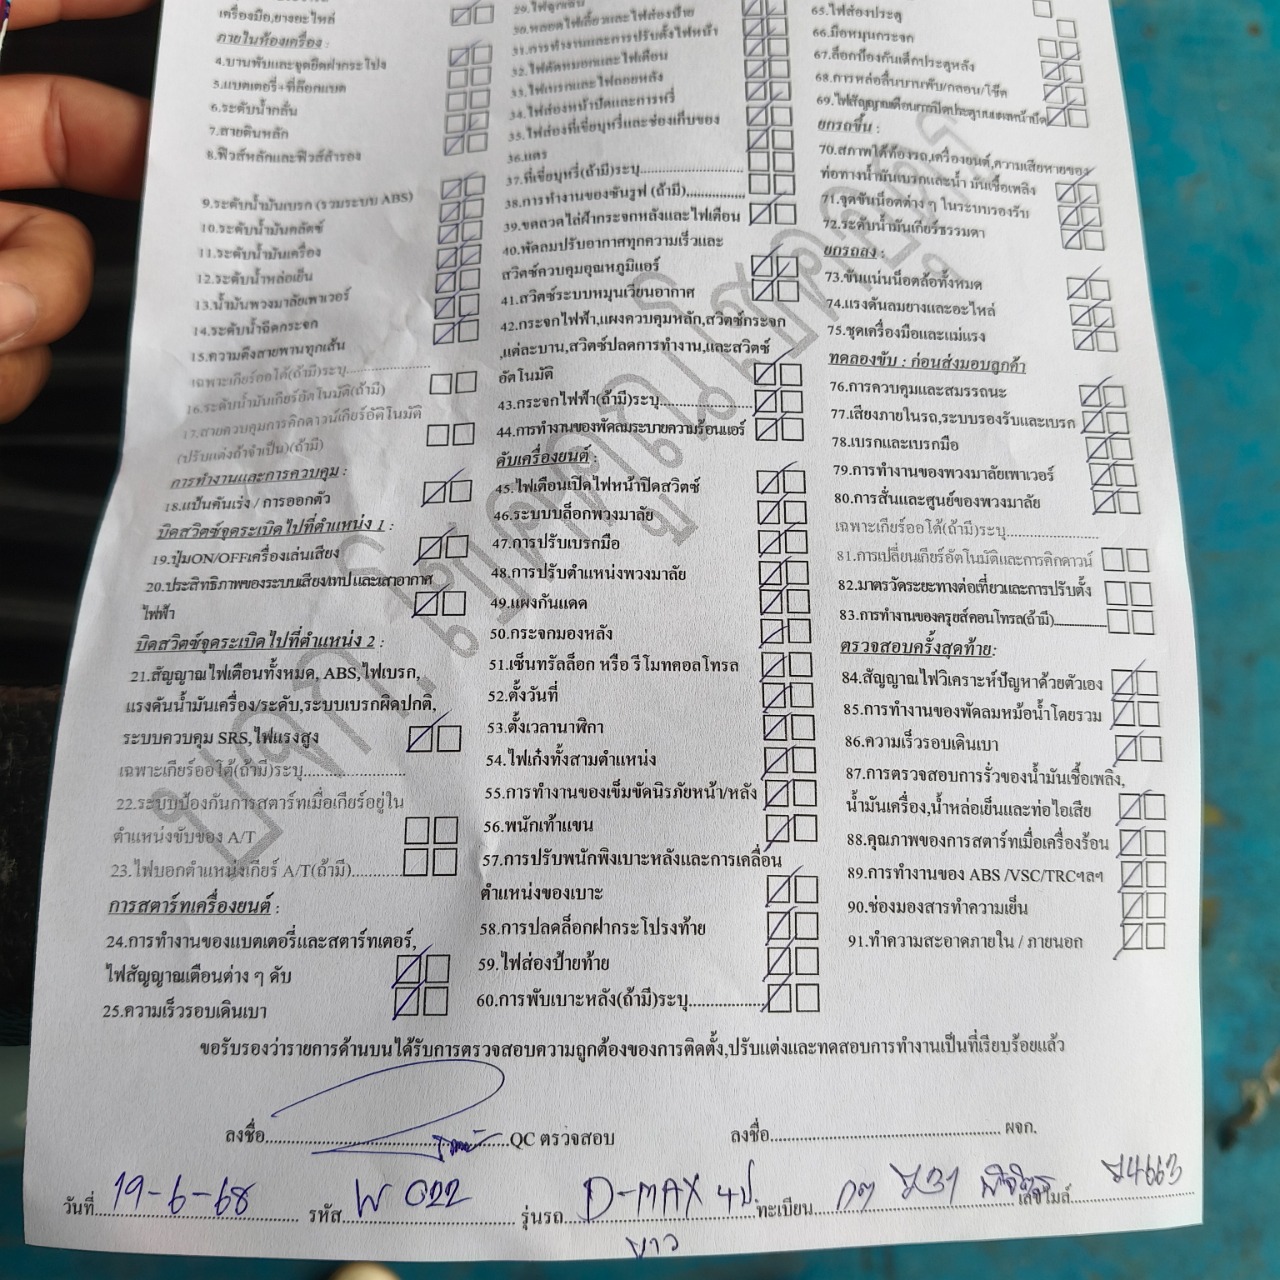 เครื่องมือ,ยางอะไหล่
ภายในห้องเครื่อง :
4.บานพับและจุดยึดฝากระโปง
5.แบตเตอรี่+ที่ล๊อกแบต
6.ระดับน้ำกลั่น
7.สายดินหลัก
8.ฟิวส์หลักและฟิวส์สำรอง
9.ระดับน้ำมันเบรก (รวมระบบ ABS)
10.ระดับน้ำมันคลัตช์
11.ระดับน้ำมันเครื่อง
12.ระดับน้ำหล่อเย็น
13.น้ำมันพวงมาลัยเพาเวอร์
14.ระดับน้ำฉีดกระจก
15.ความตึงสายพานทุกเส้น
เฉพาะเกียร์ออโต้(ถ้ามี)ระบุ....................
16.ระดับน้ำมันเกียร์อัตโนมัติ(ถ้ามี)
17.สายควบคุมการคิกดาวน์เกียร์อัติโนมัติ
(ปรับแต่งถ้าจำเป็น)(ถ้ามี)
การทำงานและการควบคุม :
18.แป้นคันเร่ง / การออกตัว
บิดสวิตซ์จุดระเบิดไปที่ตำแหน่ง 1 :
19.ปุ่มON/OFFเครื่องเล่นเสียง
20.ประสิทธิภาพของระบบเสียงเทป และเสาอากาศ
ไฟฟ้า
บิดสวิตซ์จุดระเบิดไปที่ตำแหน่ง 2 :
21.สัญญาณไฟเตือนทั้งหมด, ABS,ไฟเบรก,
แรงดันน้ำมันเครื่อง/ระดับ,ระบบเบรกผิดปกติ,
ระบบควบคุม SRS,ไฟแรงสูง
เฉพาะเกียร์ออโต้(ถ้ามี)ระบุ....................
22.ระบบป้องกันการสตาร์ทเมื่อเกียร์อยู่ใน
ตำแหน่งขับของ A/T
23.ไฟบอกตำแหน่งเกียร์ A/T(ถ้ามี)...........
การสตาร์ทเครื่องยนต์ :
24.การทำงานของแบตเตอรี่และสตาร์ทเตอร์,
ไฟสัญญาณเตือนต่าง ๆ ดับ
25.ความเร็วรอบเดินเบา
30.หลอดไฟเลี้ยวและไฟส่องป้าย
31.การทำงานและการปรับตั้งไฟหน้า
32.ไฟตัดหมอกและไฟเตือน
33.ไฟเบรกและไฟถอยหลัง
34.ไฟส่องหน้าปัดและการหรี่
35.ไฟส่องที่เขี่ยบุหรี่และช่องเก็บของ
36.แตร
37.ที่เขี่ยบุหรี่(ถ้ามี)ระบุ....................
38.การทำงานของซันรูฟ (ถ้ามี)....................
39.ขดลวดไล่ฝ้ากระจกหลังและไฟเตือน
40.พัดลมปรับอากาศทุกความเร็วและ
สวิตซ์ควบคุมอุณหภูมิแอร์
41.สวิตซ์ระบบหมุนเวียนอากาศ
42.กระจกไฟฟ้า,แผงควบคุมหลัก,สวิตซ์กระจก
,แต่ละบาน,สวิตซ์ปลดการทำงาน,และสวิตซ์
อัตโนมัติ
43.กระจกไฟฟ้า(ถ้ามี)ระบุ....................
44.การทำงานของพัดลมระบายความร้อนแอร์
ดับเครื่องยนต์ :
45.ไฟเตือนเปิดไฟหน้าปิดสวิตซ์
46.ระบบบล็อกพวงมาลัย
47.การปรับเบรกมือ
48.การปรับตำแหน่งพวงมาลัย
49.แผงกันแดด
50.กระจกมองหลัง
51.เซ็นทรัลล็อก หรือ รีโมทคอลโทรล
52.ตั้งวันที่
53.ตั้งเวลานาฬิกา
54.ไฟเก๋งทั้งสามตำแหน่ง
55.การทำงานของเข็มขัดนิรภัยหน้า/หลัง
56.พนักเท้าแขน
57.การปรับพนักพิงเบาะหลังและการเคลื่อน
ตำแหน่งของเบาะ
58.การปลดล็อกฝากระโปรงท้าย
59.ไฟส่องป้ายท้าย
60.การพับเบาะหลัง(ถ้ามี)ระบุ....................
65.ไฟส่องประตู
66.มือหมุนกระจก
67.ล็อกป้องกันเด็กประตูหลัง
68.การหล่อลื่นบานพับ/กลอน/โช๊ค
ยกรถขึ้น :
70.สภาพใต้ท้องรถ,เครื่องยนต์,ความเสียหายของ
ท่อทางน้ำมันเบรกและน้ำมันเชื้อเพลิง
71.จุดขันน็อตต่าง ๆ ในระบบรองรับ
72.ระดับน้ำมันเกียร์ธรรมดา
ยกรถลง :
73.ขันแน่นน็อตล้อทั้งหมด
74.แรงดันลมยางและอะไหล่
75.ชุดเครื่องมือและแม่แรง
ทดลองขับ : ก่อนส่งมอบลูกค้า
76.การควบคุมและสมรรถนะ
77.เสียงภายในรถ,ระบบรองรับและเบรก
78.เบรกและเบรกมือ
79.การทำงานของพวงมาลัยเพาเวอร์
80.การสั่นและศูนย์ของพวงมาลัย
เฉพาะเกียร์ออโต้(ถ้ามี)ระบุ....................
81.การเปลี่ยนเกียร์อัตโนมัติและการคิกดาวน์
82.มาตรวัดระยะทางต่อเที่ยวและการปรับตั้ง
83.การทำงานของครุยส์คอนโทรล(ถ้ามี)....................
ตรวจสอบครั้งสุดท้าย:
84.สัญญาณไฟวิเคราะห์ปัญหาด้วยตัวเอง
85.การทำงานของพัดลมหม้อน้ำโดยรวม
86.ความเร็วรอบเดินเบา
87.การตรวจสอบการรั่วของน้ำมันเชื้อเพลิง,
น้ำมันเครื่อง,น้ำหล่อเย็นและท่อไอเสีย
88.คุณภาพของการสตาร์ทเมื่อเครื่องร้อน
89.การทำงานของ ABS /VSC/TRCฯลฯ
90.ช่องมองสารทำความเย็น
91.ทำความสะอาดภายใน / ภายนอก
ขอรับรองว่ารายการด้านบนได้รับการตรวจสอบความถูกต้องของการติดตั้ง,ปรับแต่งและทดสอบการทำงานเป็นที่เรียบร้อยแล้ว
ลงชื่อ....................QC ตรวจสอบ ลงชื่อ.................... ผจก.
วันที่ 19-6-68 รหัส W 022 รุ่นรถ D-MAX 4ป. ทะเบียน เลขไมล์
ขาว